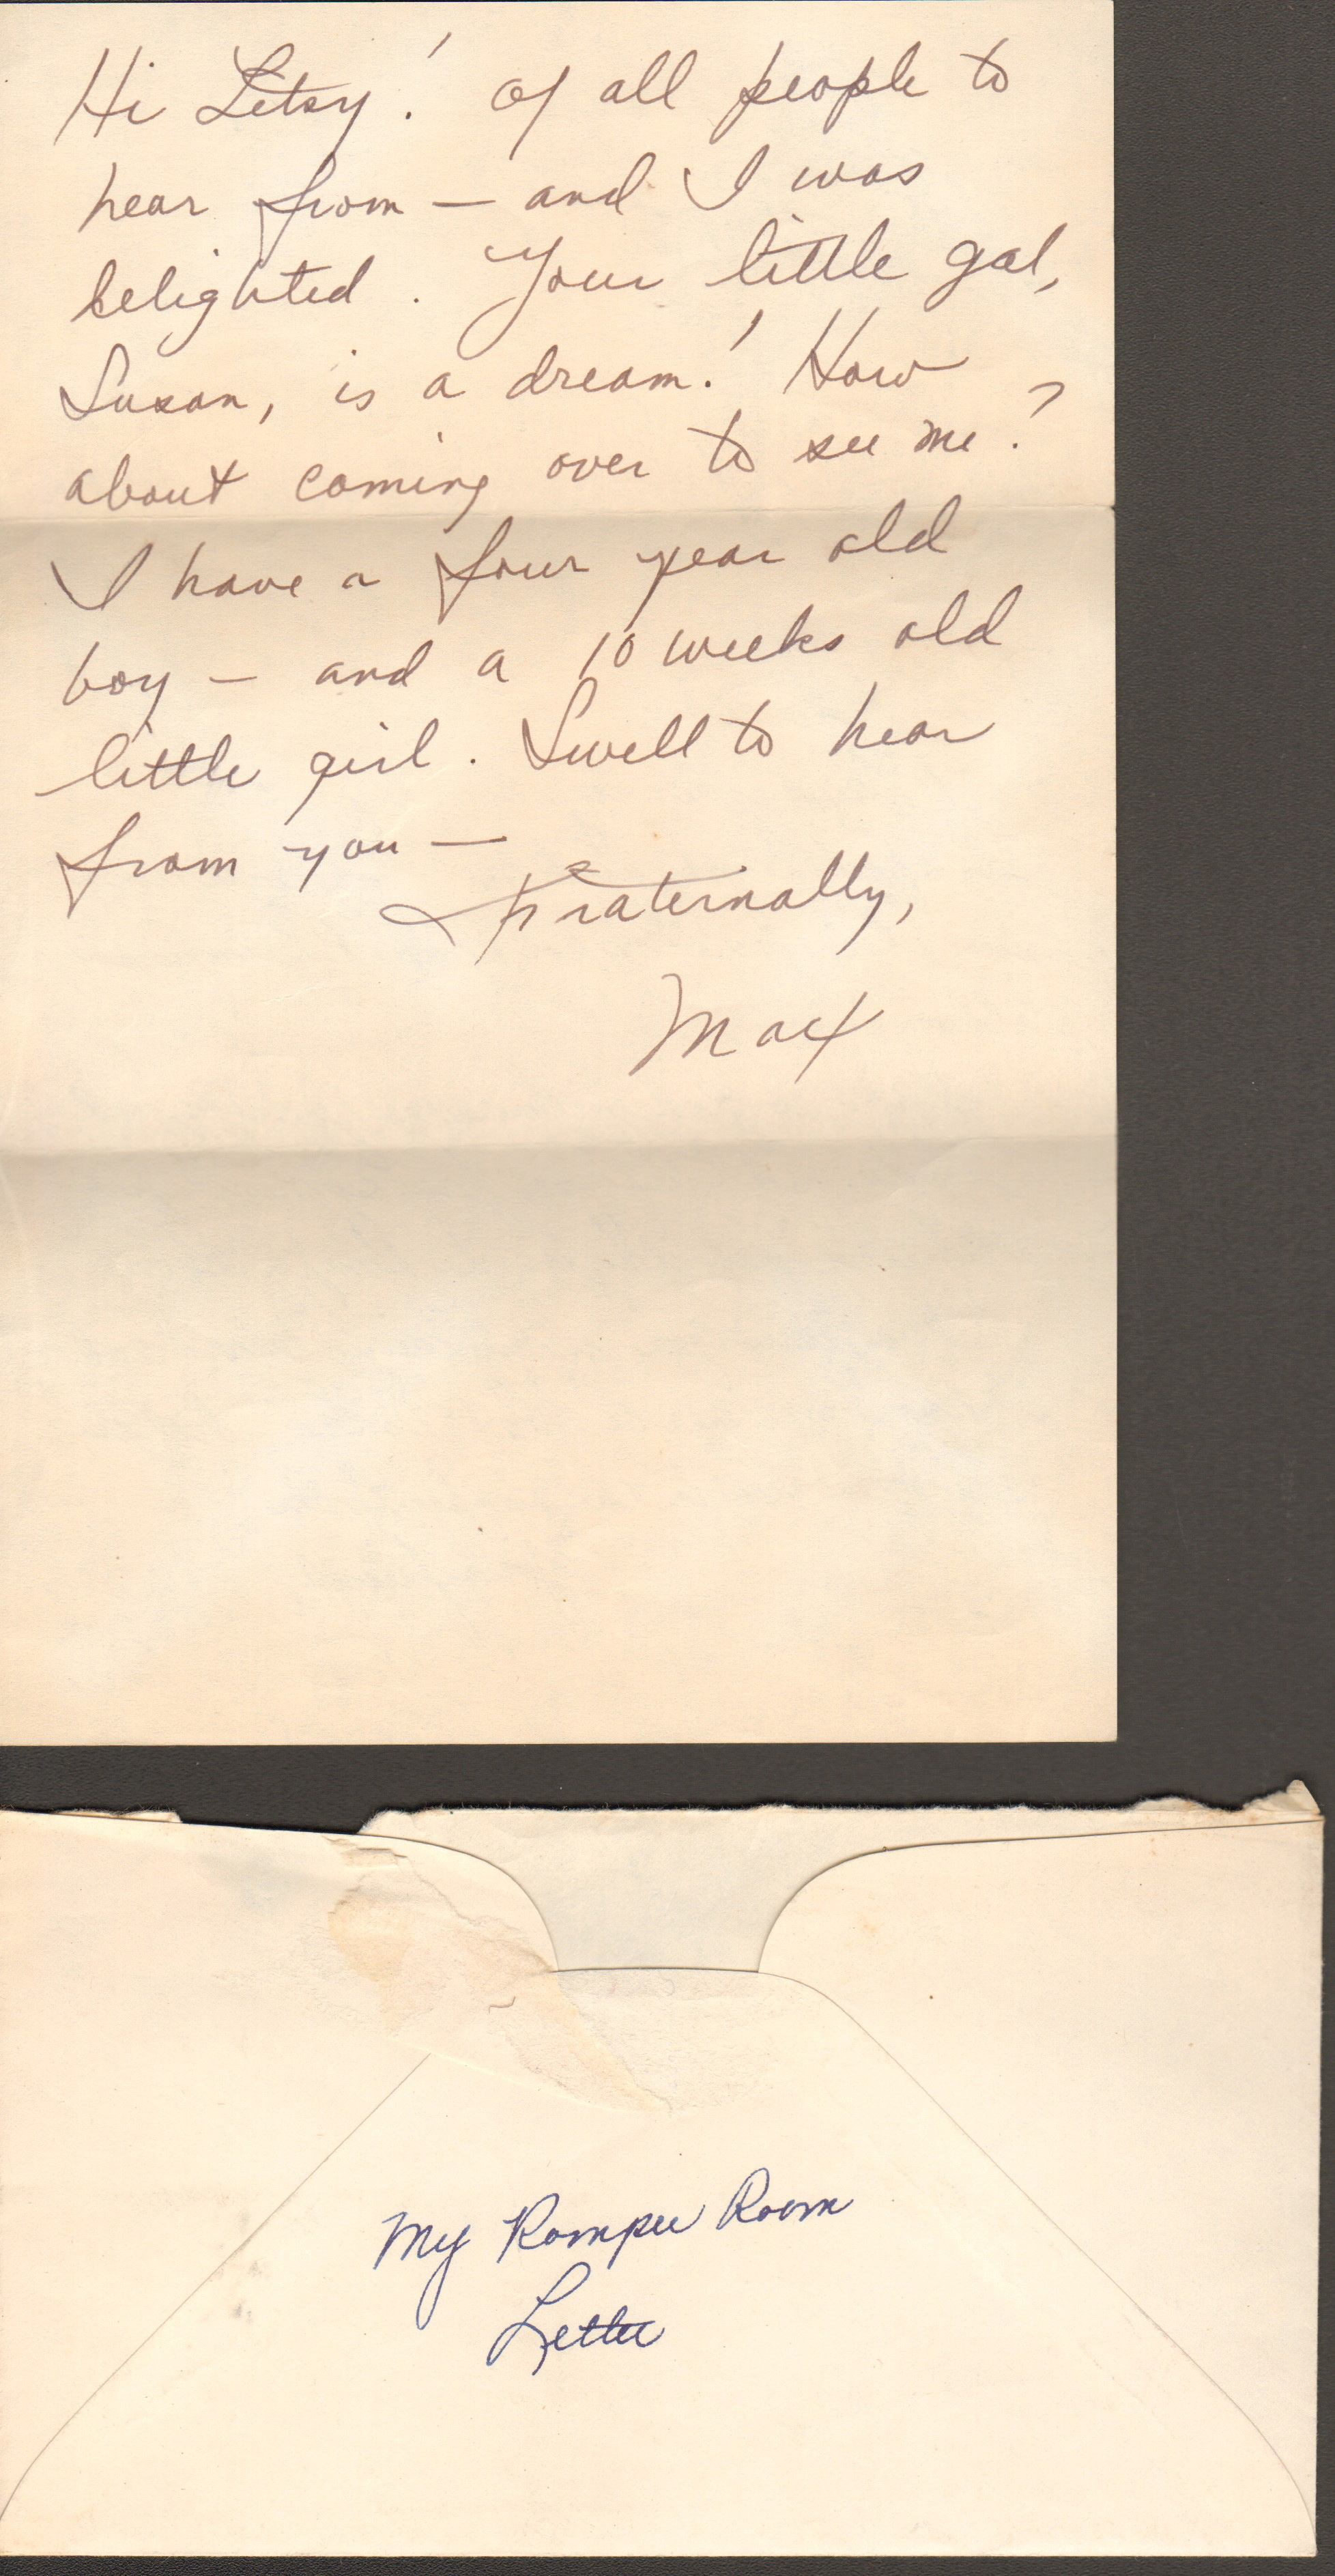 Hi Letsy! Of all people to
hear from – and I was
delighted. Your little gal,
Susan, is a dream! How
about coming over to see me?
I have a four year old
boy – and a 10 weeks old
little girl. Swell to hear
from you –
Fraternally,
Max
My Romper Room
Letter